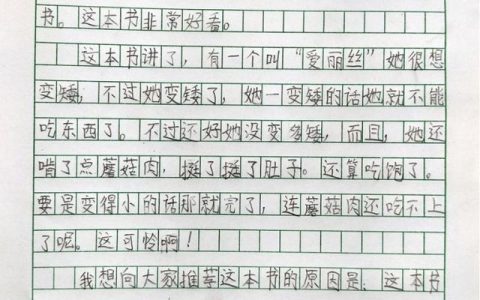 书。这本书非常好看。
这本书讲了，有一个叫“爱丽丝”她很想
变矮，不过她变矮了，她一变矮的话她就不能
吃东西了。不过还好她没变多矮，而且，她还
啃了点蘑菇肉，挺了挺了肚子。还算吃饱了。
要是变得小的话那就完了，连蘑菇肉还吃不上
了呢。这可怜啊！
我想向大家推荐这本书的原因是：这本书